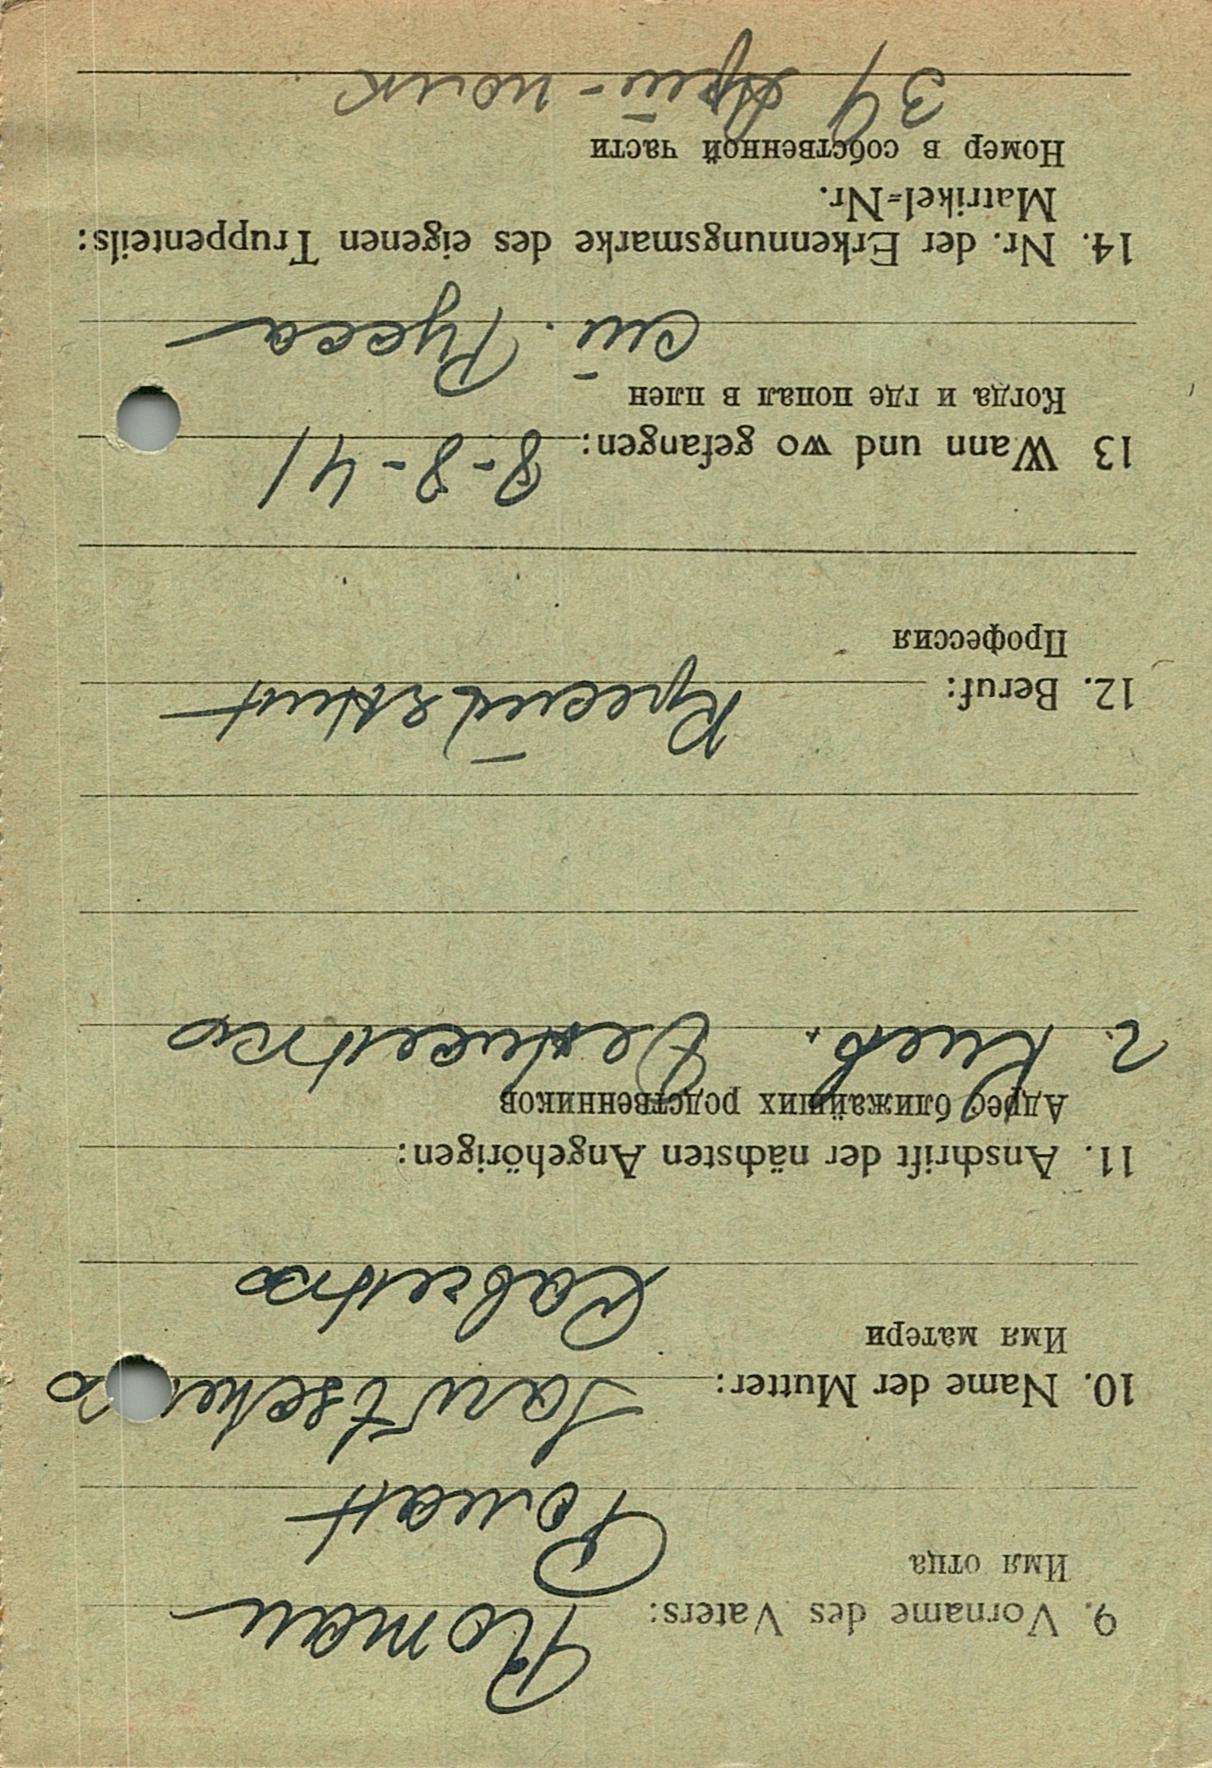 9. Vorname des Vaters: Roman
Имя отца
Роман
10. Name der Mutter: Sawtschenko
Имя матери
Савченко
11. Anschrift der nächsten Angehörigen:
Адрес ближайших родственников
г. Киев.
12. Beruf:
Профессия
13 Wann und wo gefangen: 8-8-41
Когда и где попал в плен
ст. Русса
14. Nr. der Erkennungsmarke des eigenen Truppenteils:
Matrikel=Nr.
Номер в собственной части
полк